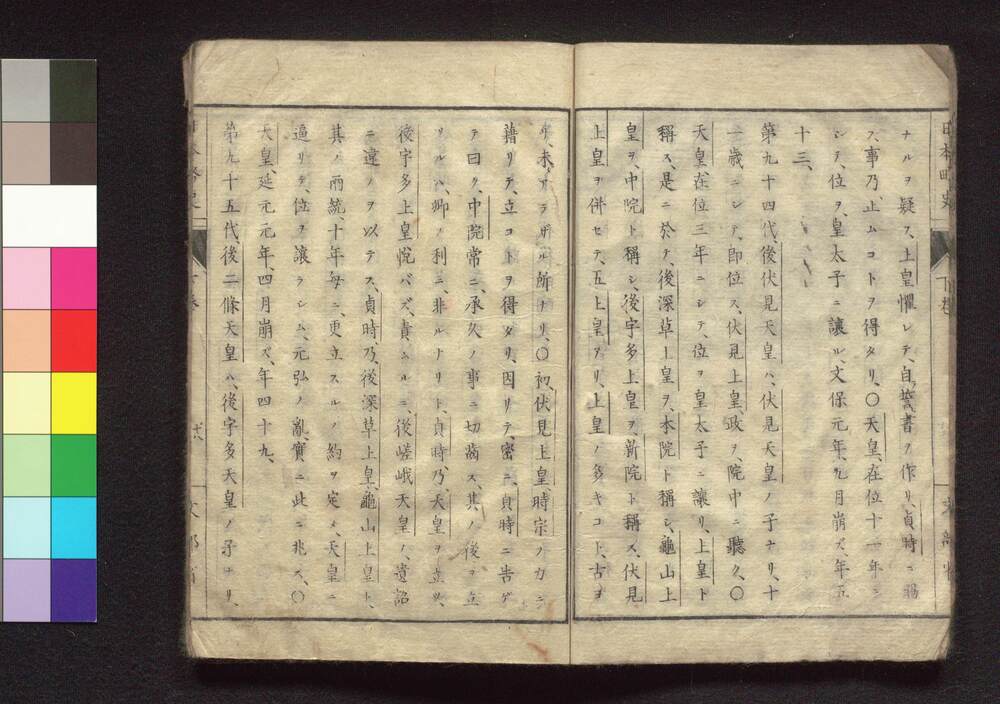 日本略史
下巻
文部省
ナルヲ疑ス、上皇懼レテ、自、誓書ヲ作リ、貞時ニ賜
ス、事乃、止ムコトヲ得タリ、〇天皇、在位十一年ニ
シテ、位ヲ、皇太子ニ讓ル、文保元年、九月崩ズ、年五
十三、
第九十四代、後伏見天皇ハ、伏見天皇ノ子ナリ、十
一歳ニシテ、即位ス、伏見上皇、政ヲ、院中ニ聽ク、〇
天皇在位三年ニシテ、位ヲ皇太子ニ讓リ、上皇ト
稱ス、是ニ於テ、後深草上皇ヲ、本院ト稱シ、龜山上
皇ヲ、中院ト稱シ、後宇多上皇ヲ新院ト稱ス、伏見
上皇ヲ併セテ、五上皇アリ、上皇ノ多キコト、古ヨ
リ、未、サラザル所ナリ、〇初、伏見上皇、時宗ノカニ
藉リテ、立コトヲ得タリ、因リテ、密ニ、貞時ニ告ゲ
テ曰ク、中院常ニ、承久ノ事ニ切齒ス、其ノ後ヲ立
ツルハ、卿ノ利ニ、非ルナリト、貞時、乃、天皇ヲ立ツ、
後宇多上皇悅バズ、責ムルニ、後嵯峨天皇ノ、遺詔
ニ違フヲ以テス、貞時乃、後深草上皇、龜山上皇ト、
其ノ兩統、十年毎ニ、更立スルノ約ヲ定メ、天皇ニ
逼リテ、位ヲ讓ラシム、元弘ノ亂、實ニ此ニ兆ス、〇
天皇、延元元年、四月崩ズ、年四十九、
第九十五代、後二條天皇ハ、後宇多天皇ノ子ナリ、
文部省